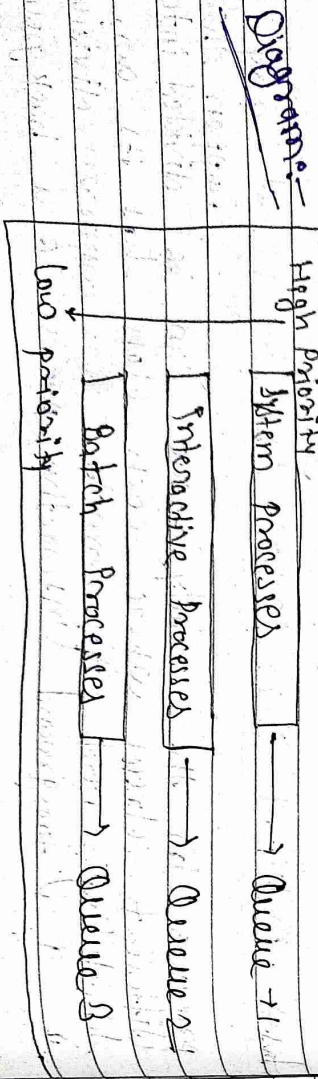 Diagram:-
High Priority
System processes → Queue → 1
Interactive Processes → Queue 2
Batch Processes → Queue 3
Low priority